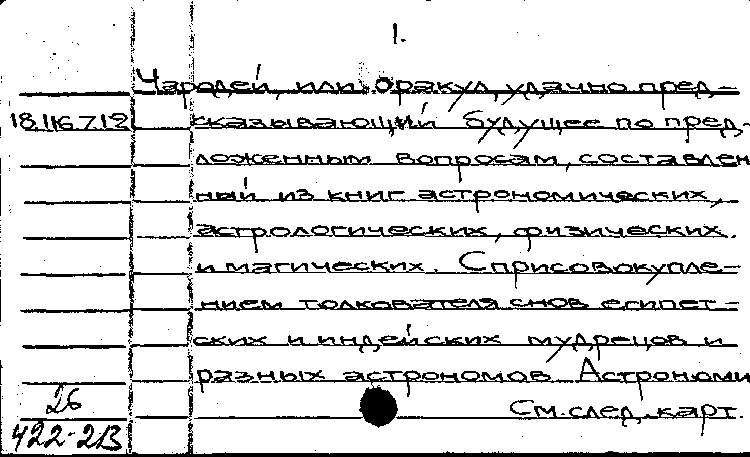 1.
Чародей, или оракул, удачно пред-
18.116.7.12 сказывающий будущее по пред-
ложенным вопросам, составлен
ный из книг астрономических,
астрологических, физических
и магических. С присовокупле-
нием толкователя снов египет-
ских и индейских мудрецов и
разных астрономов. Астрономи
26
См. след. карт.
422-213